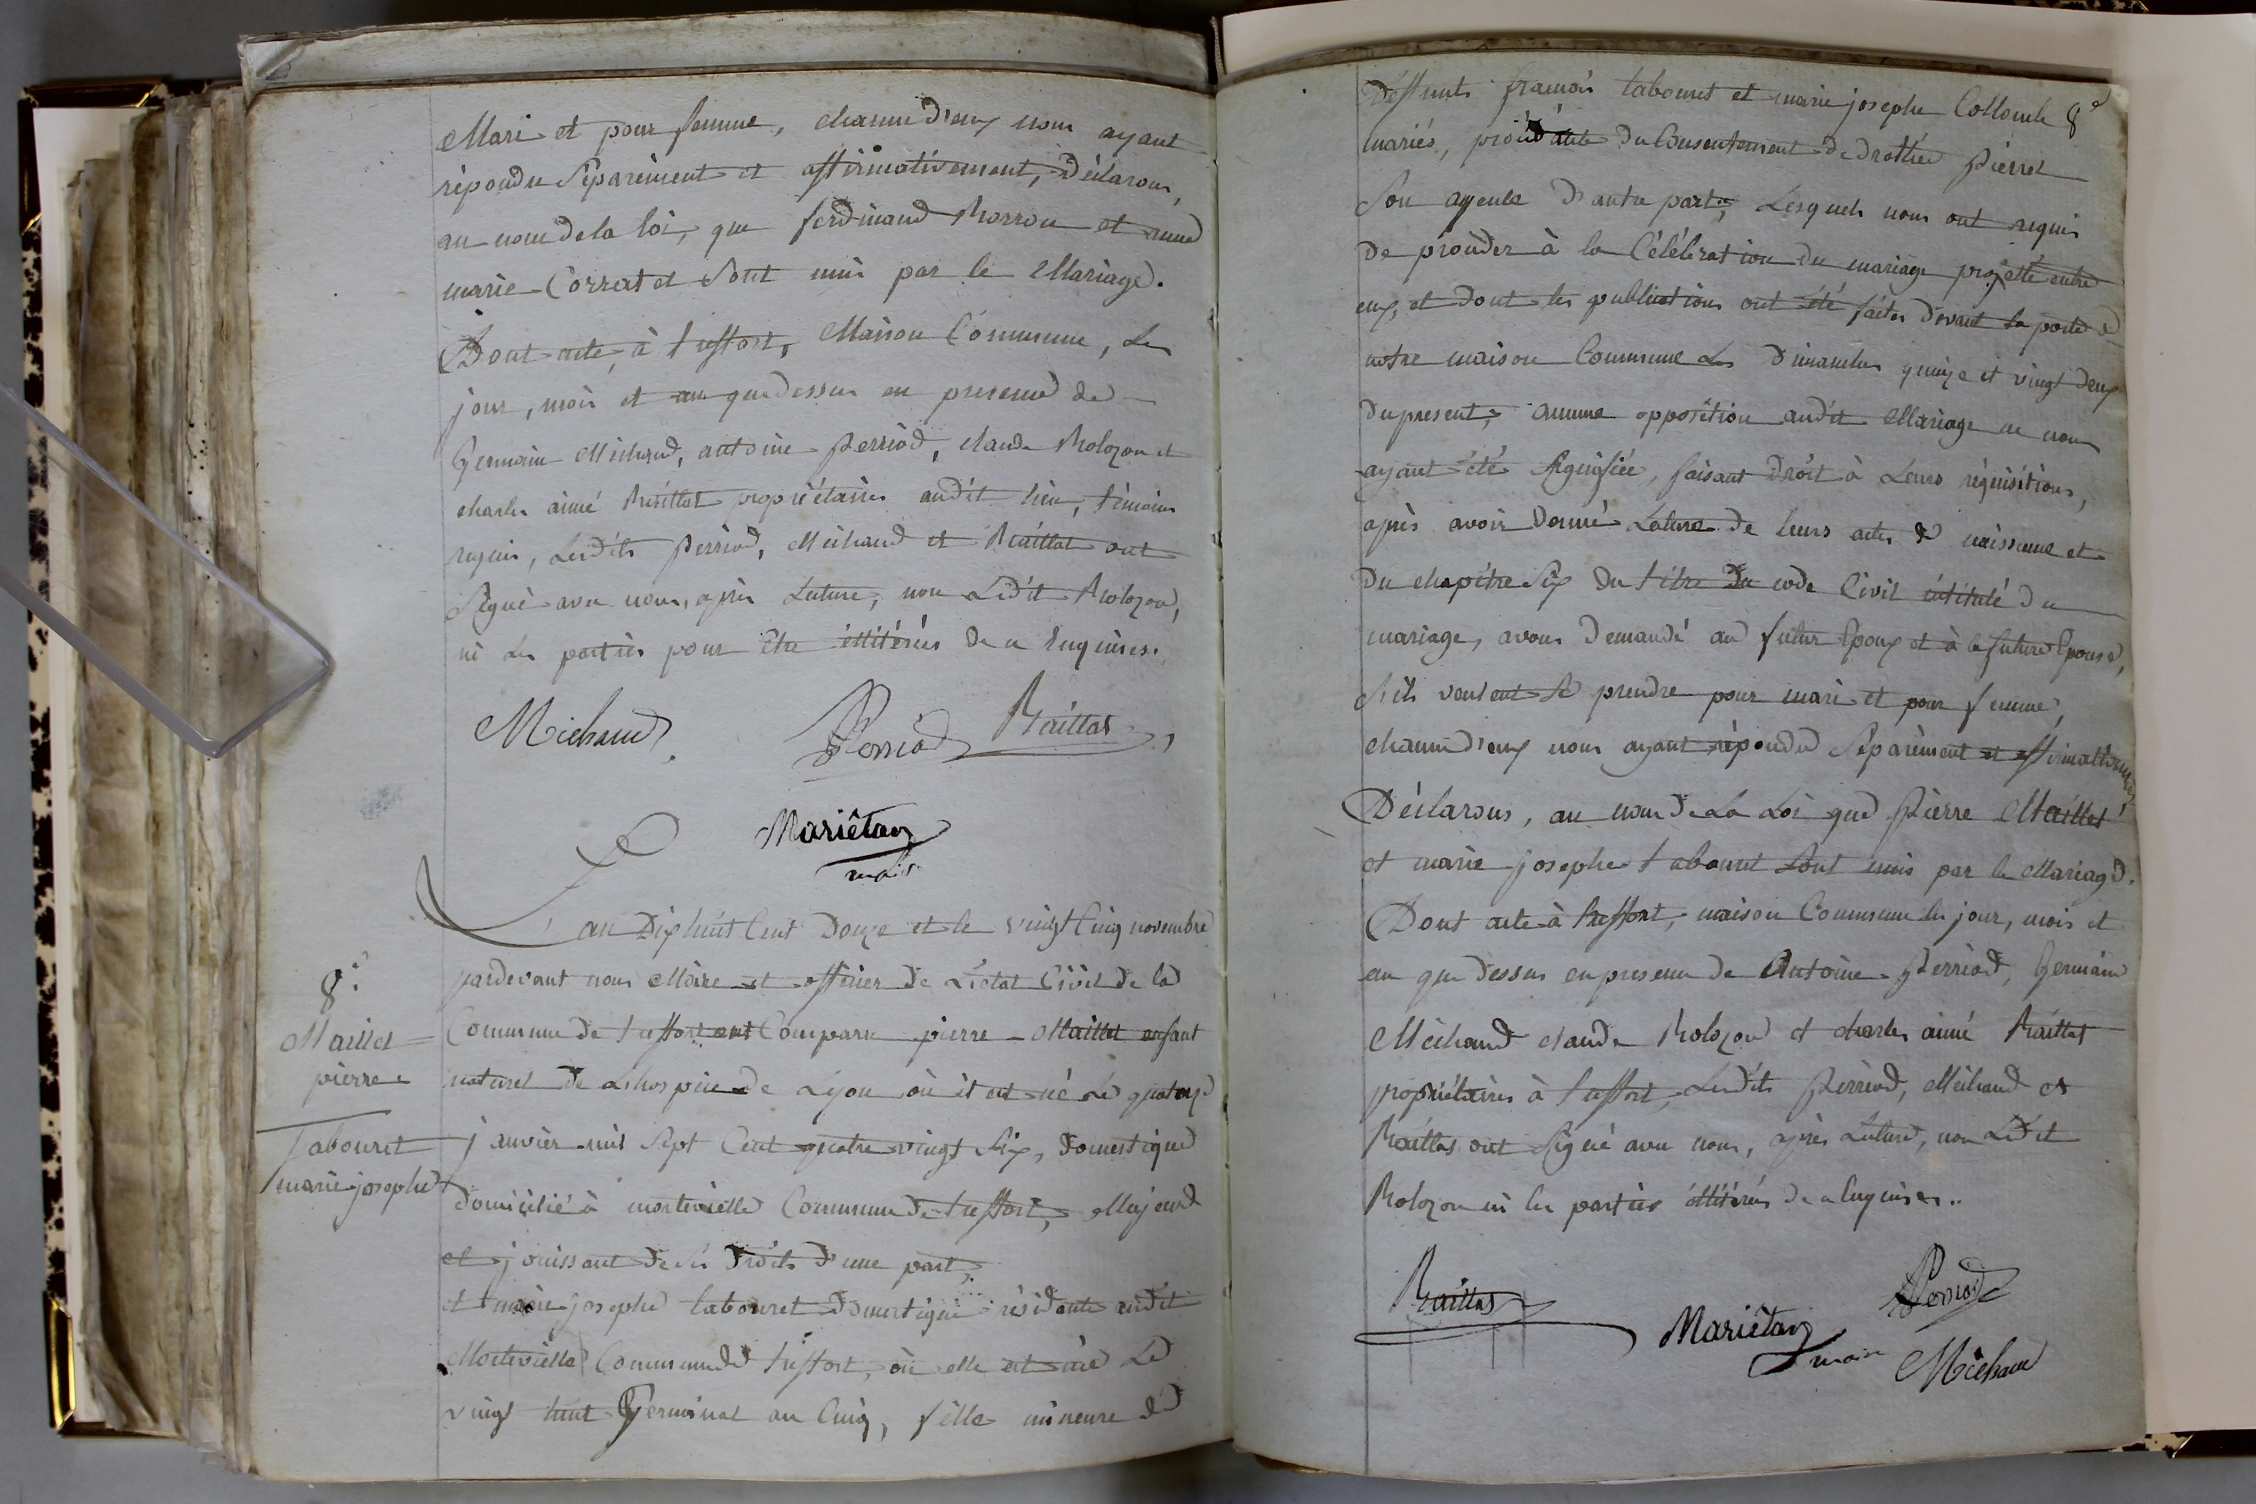 Mari et pour femme, chacun d'eux nous ayant
répondu séparément et affirmativement, Déclarons,
au nom de la loi, que ferdinand Morron et anne
marie Corratet sont unis par le Mariage.
Dont acte, à treffort, Maison Commune, les
jour, mois et an que dessus en presence de
Germain Michaud, antoine Perriod, claude Rolozon et
charles aimé Raillat propriétaires audit lieu, témoins
requis, Lesdits Perriod, Michaud et Raillat ont
Signé avec nous, après Lecture, non Ledit Rolozon,
ni les parties pour être illitérés de ce Enquises.
Michaud Perriod Raillat
Mariétan
maire
L'an Dix huit Cent Douze et le vingt Cinq novembre
pardevant nous Maire et officier de L'état Civil de la
Commune de treffort ont Comparu pierre Maillet enfant
naturel de L'hospice de Lyon où il est né Le quatorze
janvier mil Sept Cent quatre vingt Six, domestique
domicilié à montevielle Commune de treffort, Majeur
et jouissant de ses Droits d'une part,
et marie josephe tabouret domestique résidente audit
Montevielle Commune de treffort, où elle est née Le
vingt huit Germinal an Cinq, fille mineure de
8.e
Maillet
pierre
Tabouret
marie josephe
8.e
Deffunts francois tabouret et marie josephe Collomb
mariés, procédante du Consentement de drothée Pierret
Son ayeule d'autre part, Lesquels nous ont requis
De procéder à la Célébration du mariage projetté entre
eux, et dont les publications ont été faites devant la porte de
notre maison Commune Les Dimanches quinze et vingt deux
du present, aucune opposition audit Mariage ne nous
ayant été Signifiée, faisant Droit à Leurs réquisitions,
après avoir Donné Lecture de leurs actes de naissance et
Du chapitre Six du titre Du code Civil intitulé du
mariage, avons Demandé au futur Epoux et à la future Epouse,
S'ils veulent Se prendre pour mari et pour femme,
chacun d'eux nous ayant répondu Séparément et affirmativement
Déclarons, au nom de La Loi que Pierre Maillet
et marie josephe tabouret Sont unis par le Mariage.
Dont acte à treffort, maison Commune les jour, mois et
an que dessus en presence de Antoine Perriod, Germain
Michaud claude Rolozon et charles aimé Raillat
propriétaires à treffort, Lesdits Perriod, Michaud et
Raillat ont Signé avec nous, après Lecture, non Ledit
Rolozon ni les parties illitérés de ce Enquises..
Raillat Mariétan
maire
Perriod
Michaud